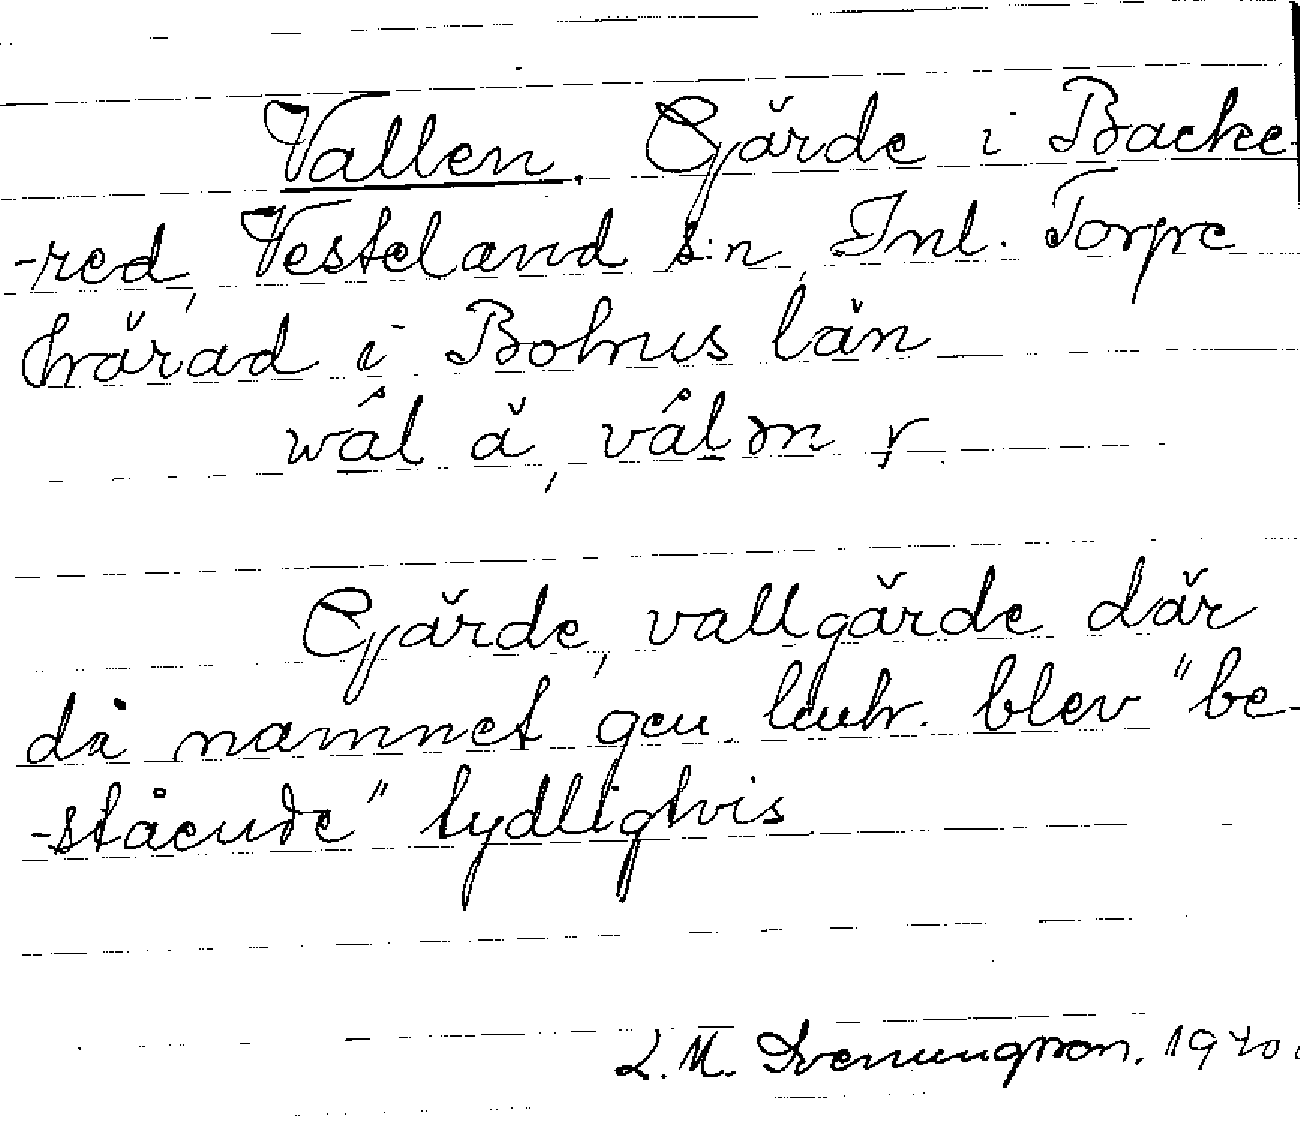 Vallen. Gärde i Backe-
-red, Vesteland s:n, Inl. Torpe
härad i Bohus län
wål ä, vålən
Gärde, vallgärde där
då namnet gen. lantr. blev "be-
-stående" tydligtvis
L. M. Svenungsson. 1940.